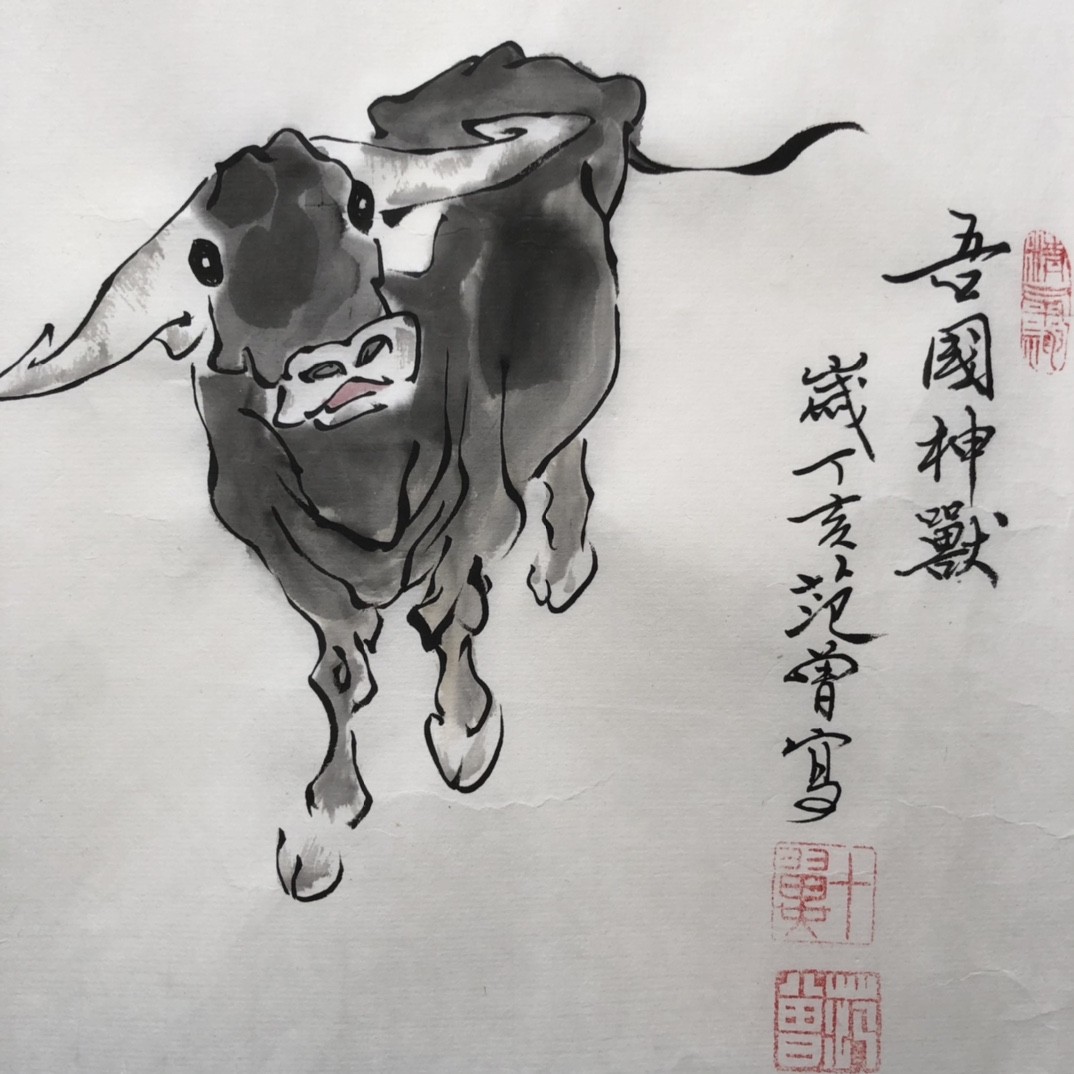 吾國神獸
歲丁亥范曾寫
十翼
范曾